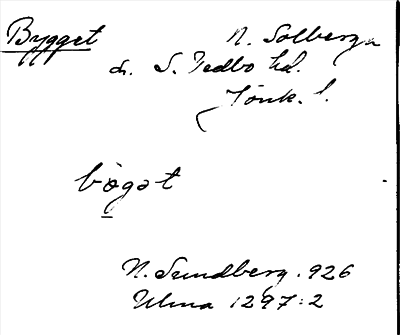 Bygget
N. Solberga
sn. S. Vedbo hd.
Jönk. l.
bøgət
N. Sundberg. 926
Ulma 1297:2